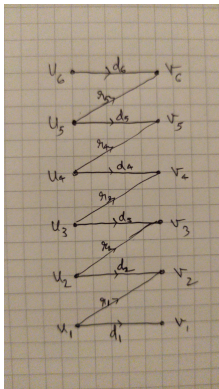 u₆ d₆ v₆
r₅
u₅ d₅ v₅
r₄
u₄ d₄ v₄
r₃
u₃ d₃ v₃
r₂
u₂ d₂ v₂
r₁
u₁ d₁ v₁